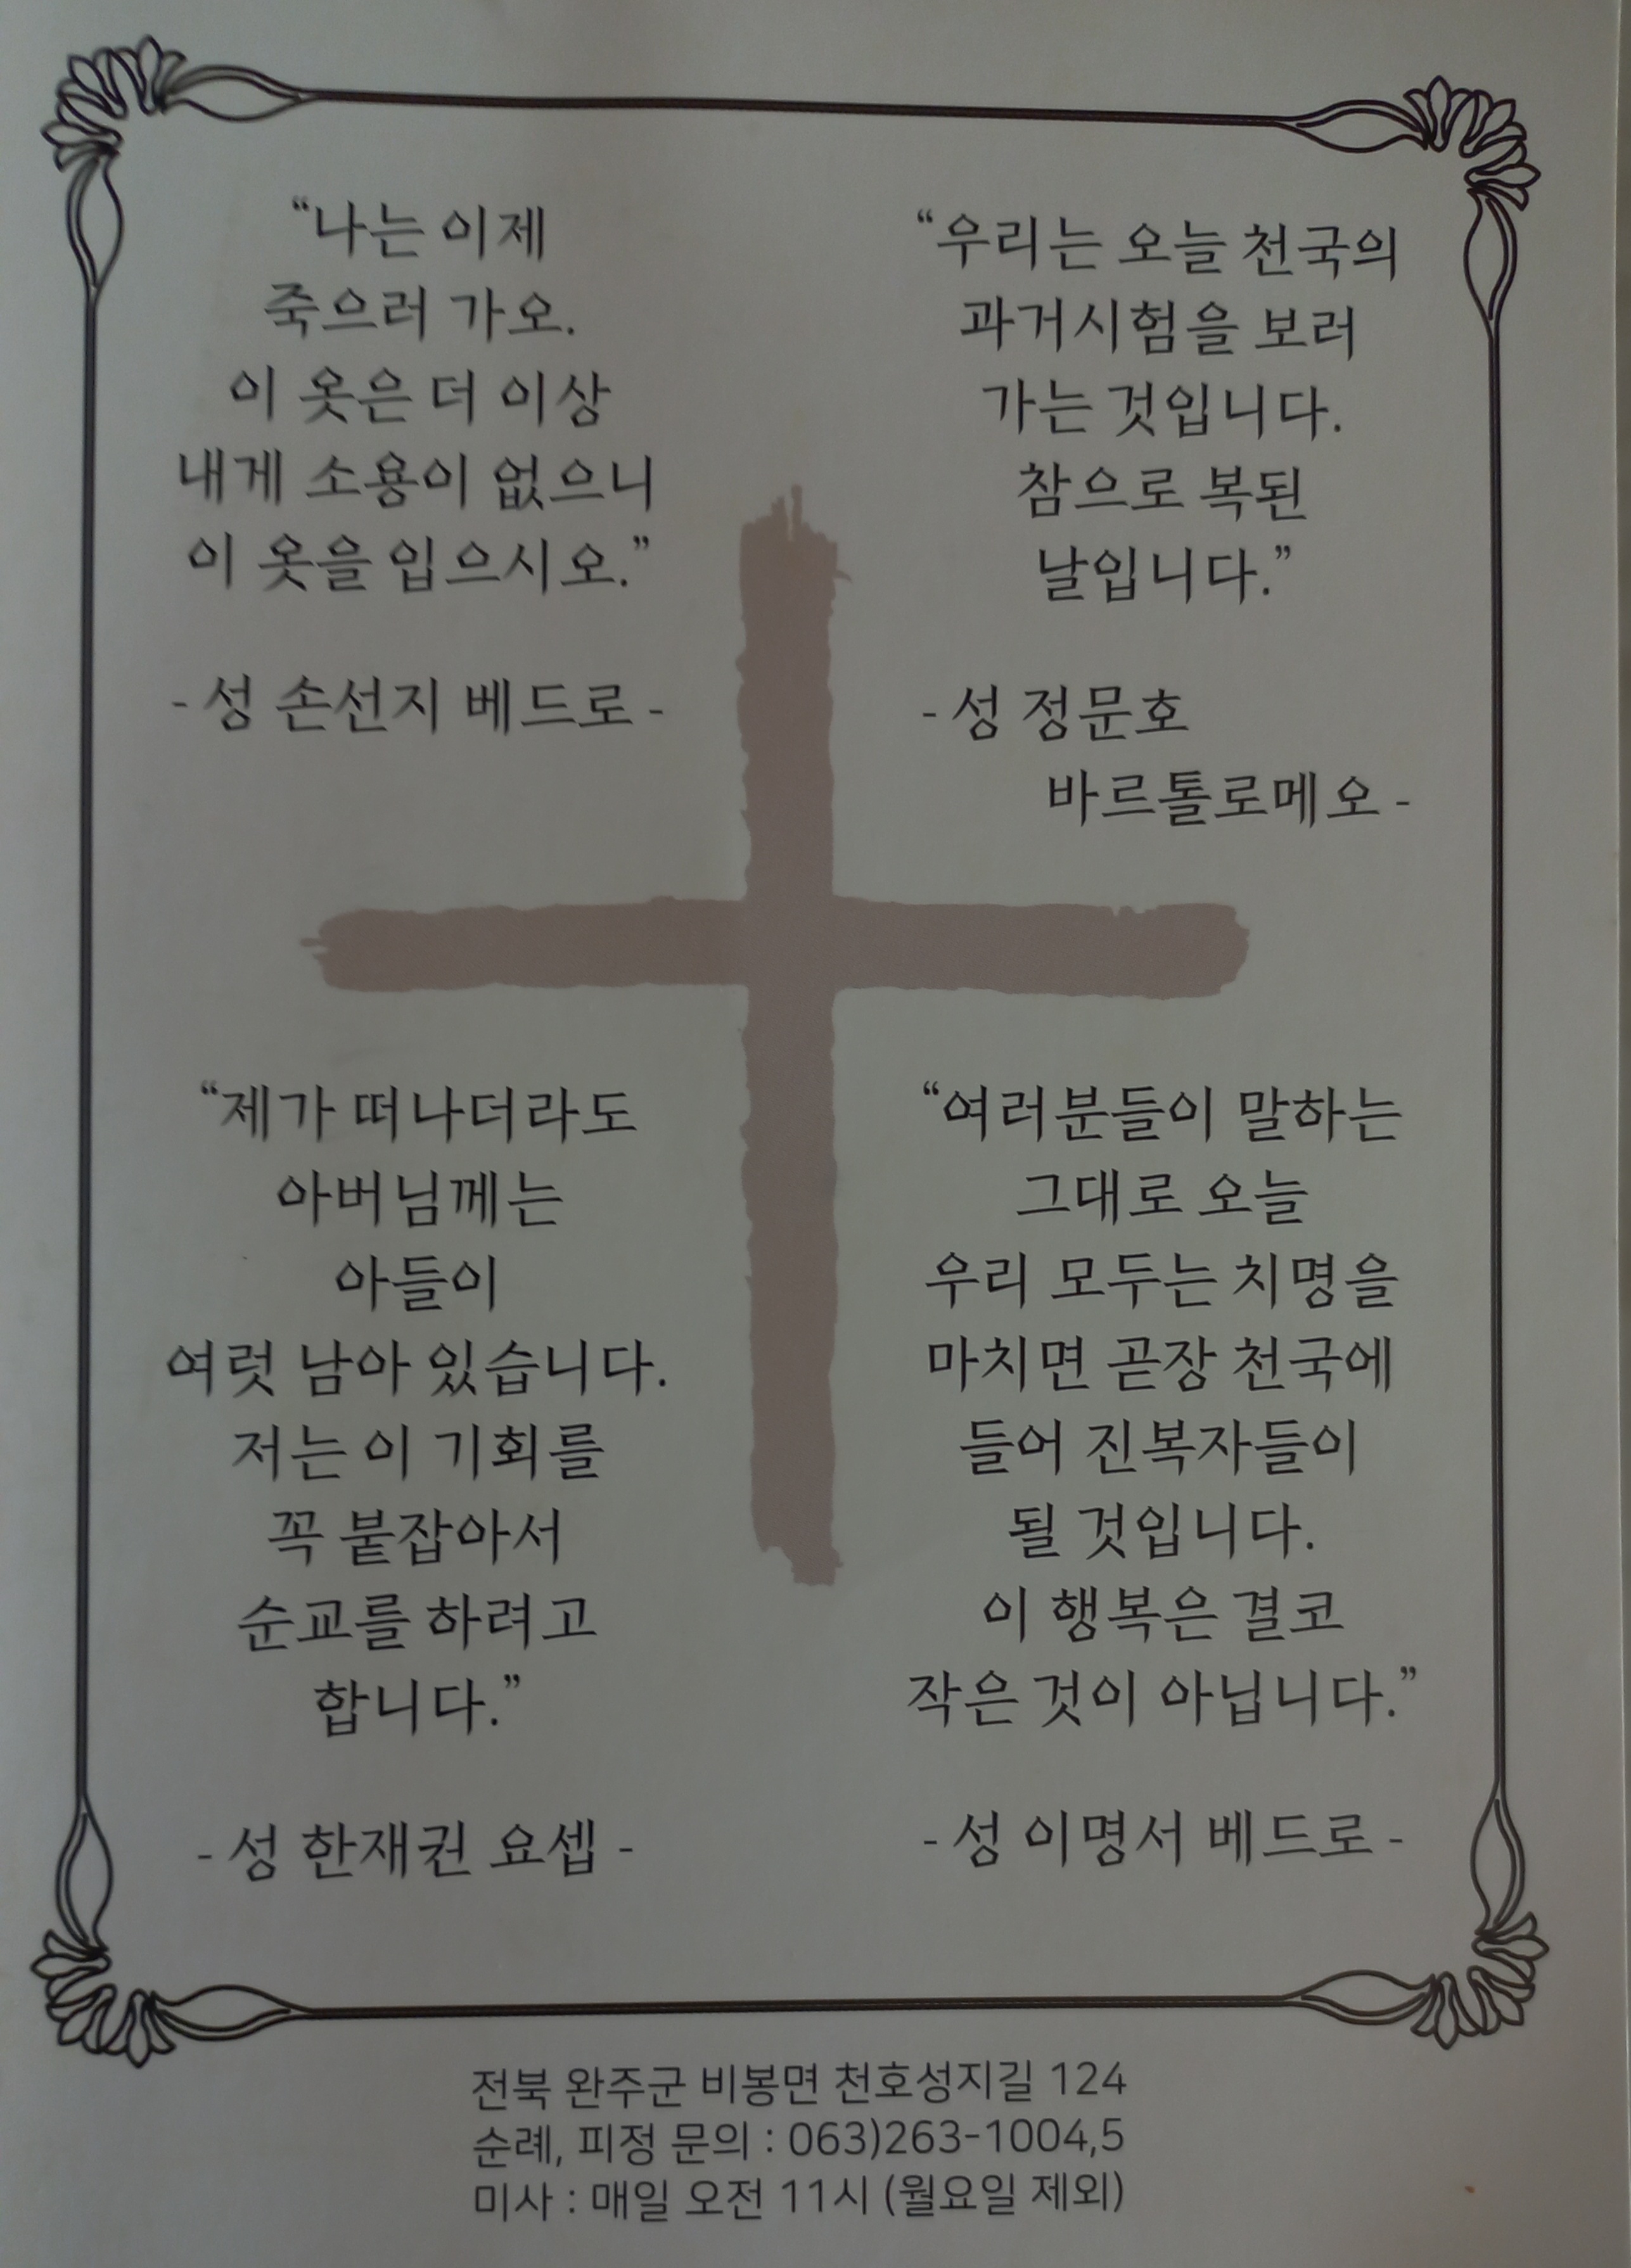 “나는 이제
죽으러 가오.
이 옷은 더 이상
내게 소용이 없으니
이 옷을 입으시오.”
- 성 손선지 베드로 -
“우리는 오늘 천국의
과거시험을 보러
가는 것입니다.
참으로 복된
날입니다.”
- 성 정문호
바르톨로메오 -
“제가 떠나더라도
아버님께는
아들이
여럿 남아 있습니다.
저는 이 기회를
꼭 붙잡아서
순교를 하려고
합니다.”
- 성 한재권 요셉 -
“여러분들이 말하는
그대로 오늘
우리 모두는 치명을
마치면 곧장 천국에
들어 진복자들이
될 것입니다.
이 행복은 결코
작은 것이 아닙니다.”
- 성 이명서 베드로 -
전북 완주군 비봉면 천호성지길 124
순례, 피정 문의 : 063)263-1004,5
미사 : 매일 오전 11시 (월요일 제외)